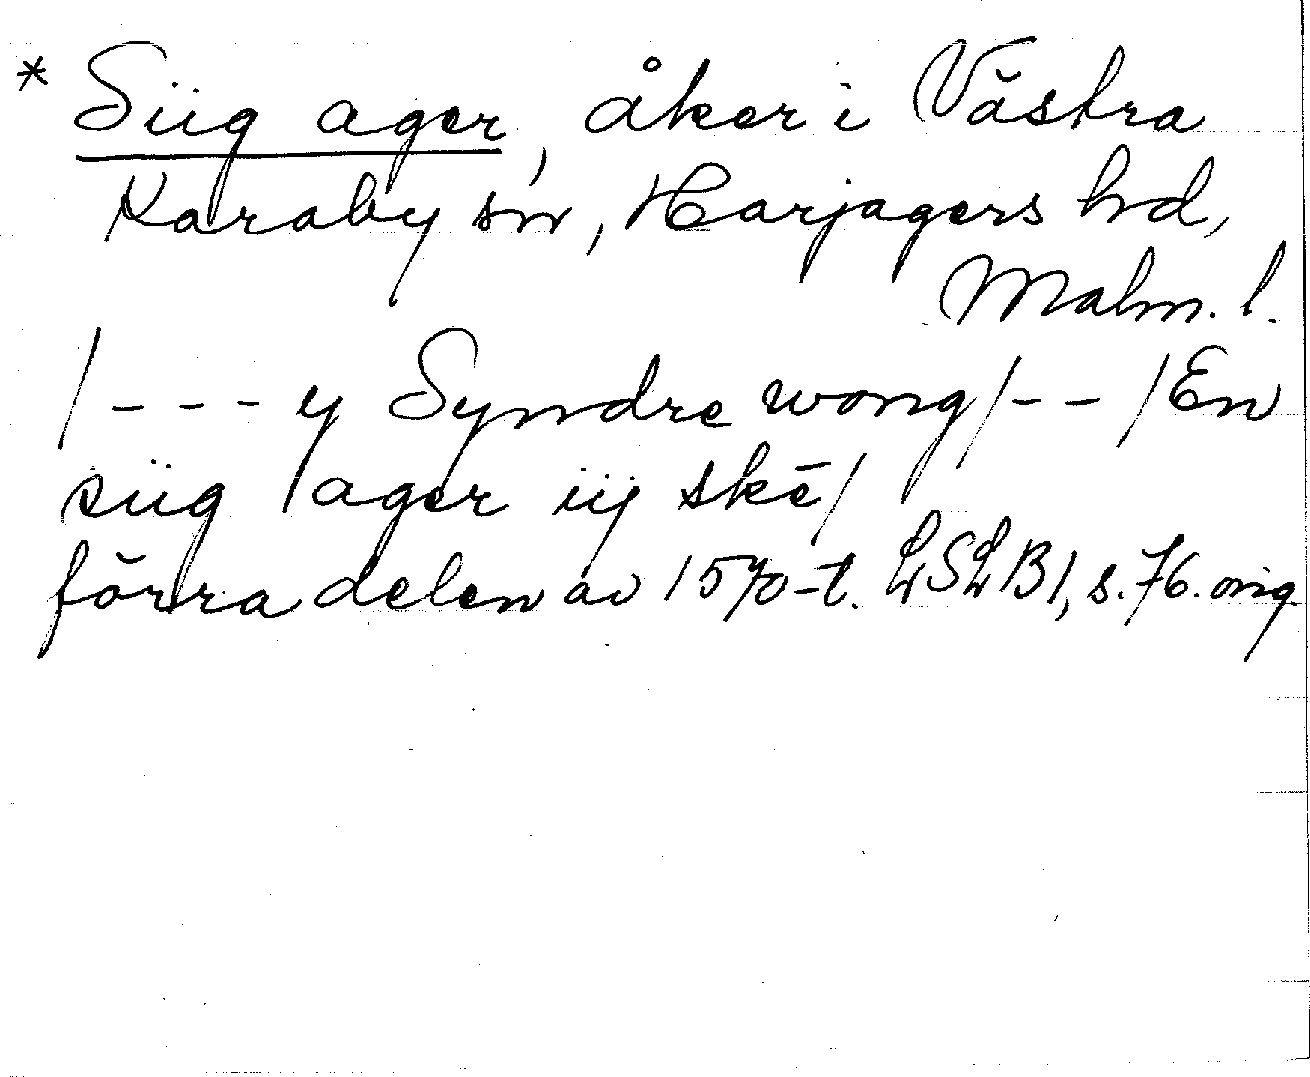 * Siig ager, åker i Västra
Karaby sn, Harjagers hd,
Malm. l.
/--- y Syndre wong/--/En
siig ager iij skē/
förra delen av 1570-t. LSLB1, s. 76. orig